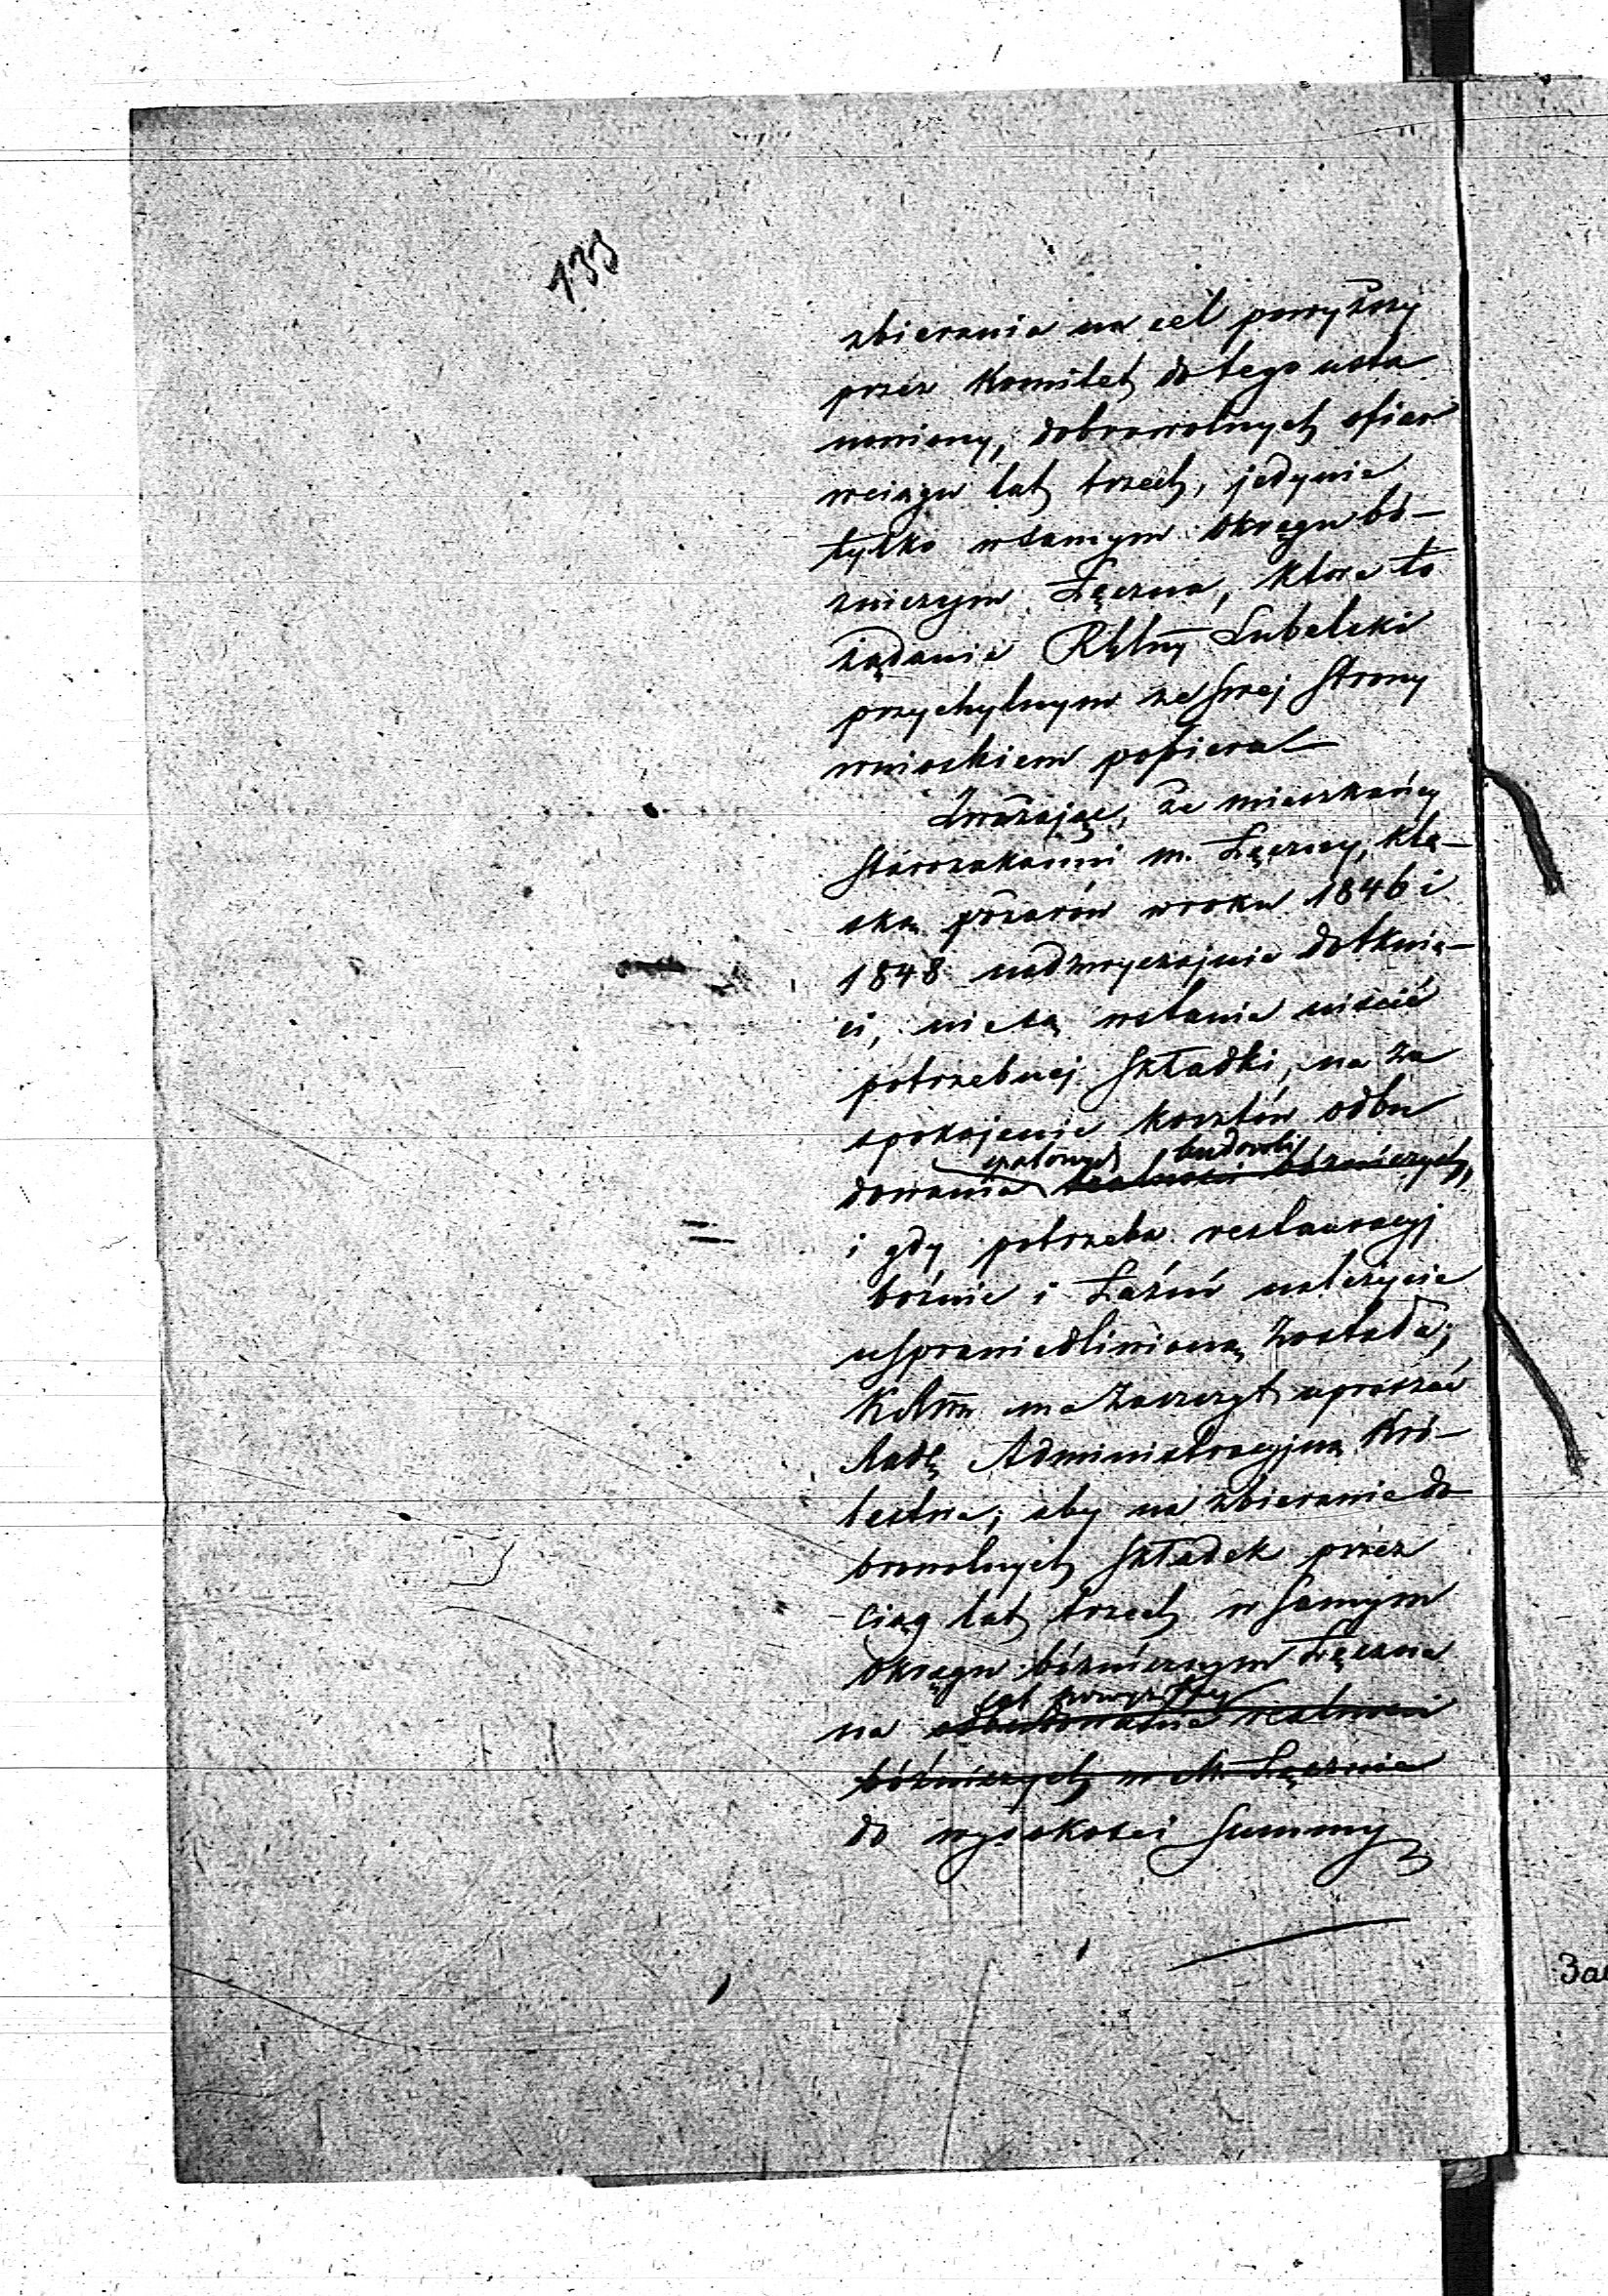 133
zbierania na cel powyższy
przez Komitet do tego usta
nowiony, dobrowolnych ofiar
wciągu lat trzech, jedynie
tylko wsamym Okręgu bó-
żniczym Łęczna, które to
żądanie Rząd Lubelski
przychylnym ze swej strony
wnioskiem popiera
Zważając, że mieszkańcy
Starozakonni m. Łęczny, klę-
ską pożarów wroku 1846 i
1848 nadzwyczajnie dotknię-
ci, nie są wstanie uiścić
potrzebnej składki, na za
spokojenie kosztów odbu
rzeczonych budowli
dowania realności bóżniczych,
i gdy potrzeba restauracyj
bożnic i Łaźni należycie
usprawiedliwioną została;
ma zaszczyt upraszać
Radę Administracyjną Kró-
lestwa, aby na zbieranie do
browolnych składek przez
ciąg lat trzech w samym
Okręgu bóżniczym Łęczna
cel powyższy
na odbudowanie realności
bóżniczych w M. Łęcznie
do wysokości Summy
За